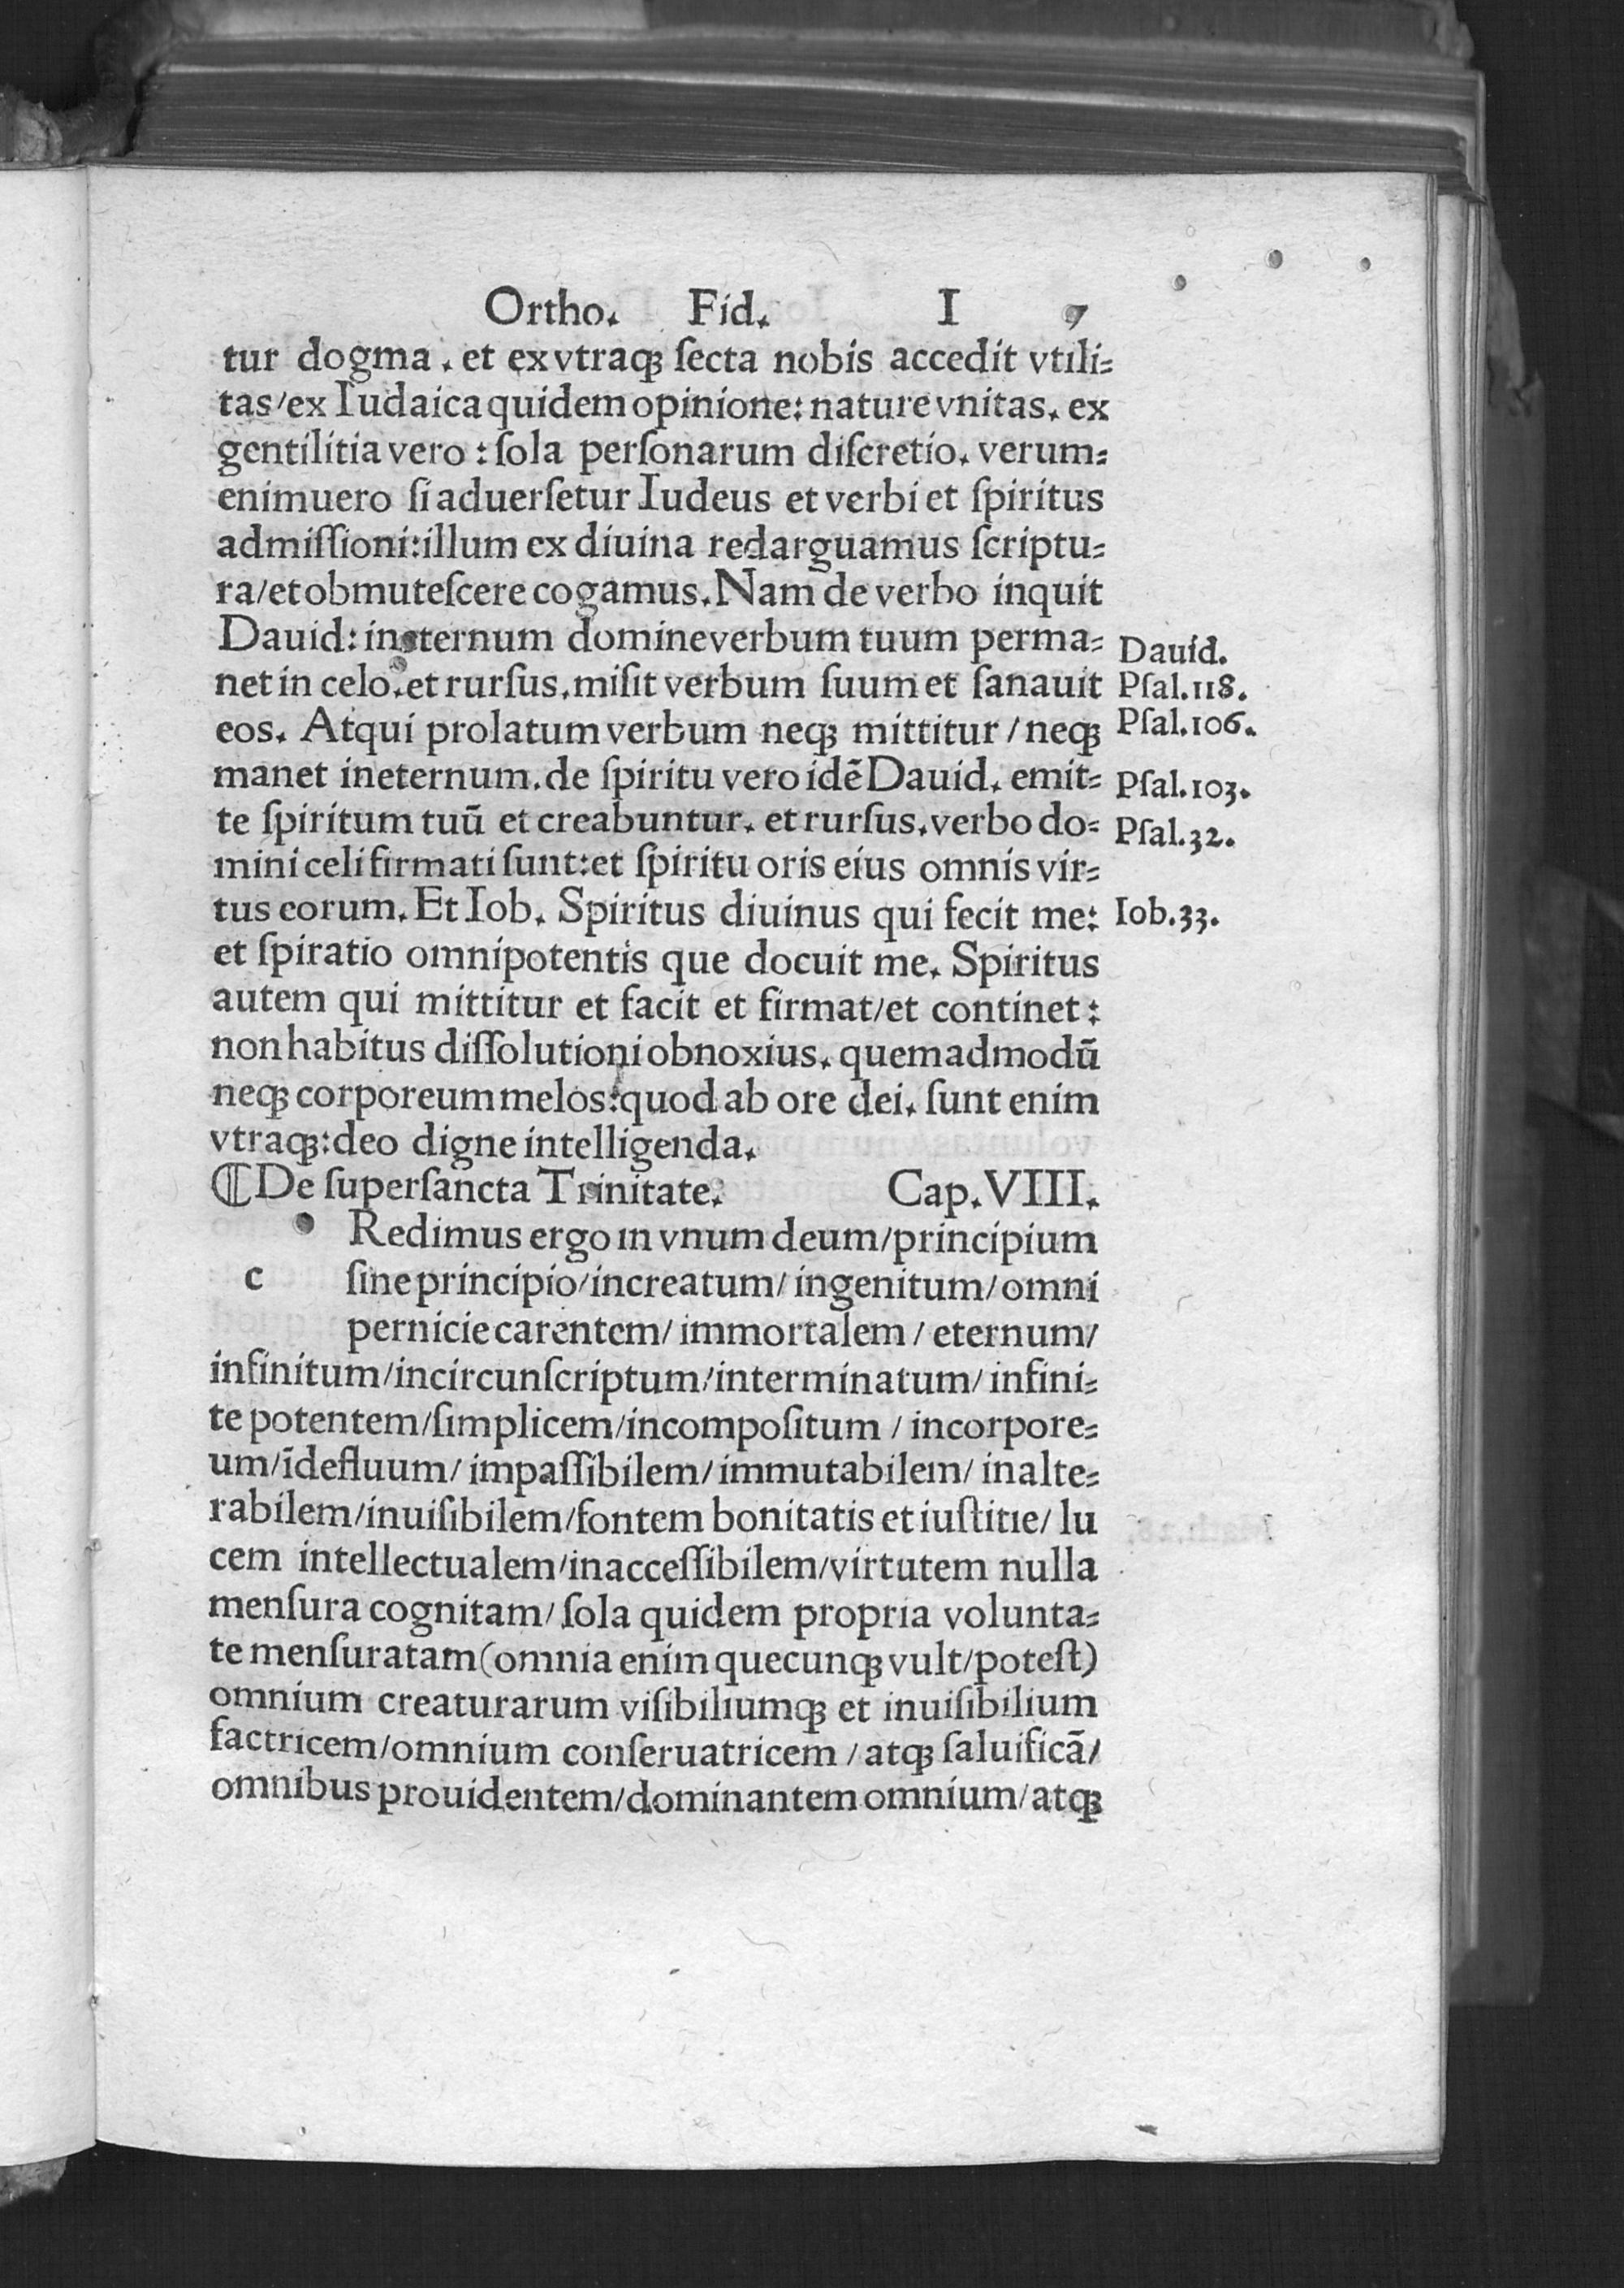 Ortho. Fid. I 7
tur dogma. et ex vtraqꝫ ſecta nobis accedit vtili-
tas/ex Iudaica quidem opinione: nature vnitas. ex
gentilitia vero: ſola perſonarum diſcretio. verum-
enimuero ſi aduerſetur Iudeus et verbi et ſpiritus
admiſſioni: illum ex diuina redarguamus ſcriptu-
ra/et obmuteſcere cogamus. Nam de verbo inquit
Dauid: in eternum domine verbum tuum perma-
Dauid.
net in celo. et rurſus. miſit verbum ſuum et ſanauit
Pſal.118.
eos. Atqui prolatum verbum neqꝫ mittitur/neqꝫ
Pſal.106.
manet ineternum. de ſpiritu vero idē Dauid. emit-
Pſal.103.
te ſpiritum tuū et creabuntur. et rurſus. verbo do-
Pſal.32.
mini celi firmati ſunt: et ſpiritu oris eius omnis vir-
tus eorum. Et Iob. Spiritus diuinus qui fecit me:
Iob.33.
et ſpiratio omnipotentis que docuit me. Spiritus
autem qui mittitur et facit et firmat/et continet:
non habitus diſſolutioni obnoxius. quemadmodū
neqꝫ corporeum melos: quod ab ore dei. ſunt enim
vtraqꝫ: deo digne intelligenda.
¶De ſuperſancta Trinitate. Cap.VIII.
Redimus ergo in vnum deum/principium
c ſine principio/increatum/ingenitum/omni
pernicie carentem/immortalem/eternum/
infinitum/incircunſcriptum/interminatum/infini-
te potentem/ſimplicem/incompoſitum/incorpore-
um/īdefluum/impaſſibilem/immutabilem/inalte-
rabilem/inuiſibilem/fontem bonitatis et iuſtitie/lu
cem intellectualem/inacceſſibilem/virtutem nulla
menſura cognitam/ſola quidem propria volunta-
te menſuratam (omnia enim quecunqꝫ vult/poteſt)
omnium creaturarum viſibiliumqꝫ et inuiſibilium
factricem/omnium conſeruatricem/atqꝫ ſaluificā/
omnibus prouidentem/dominantem omnium/atqꝫ